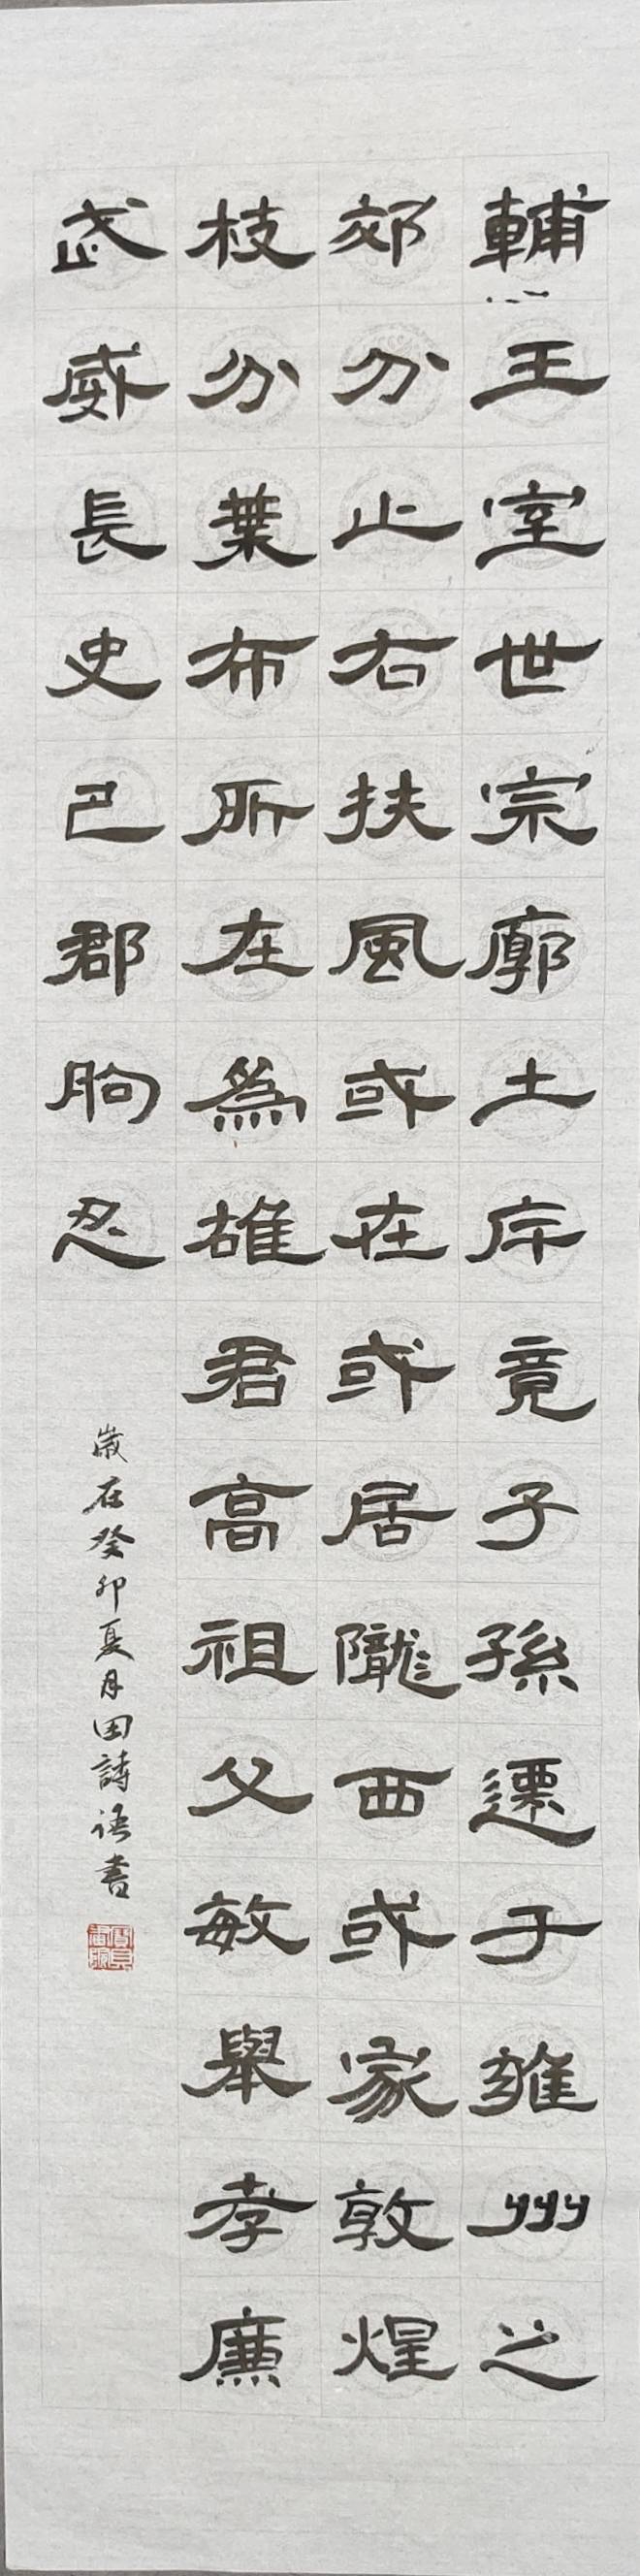 輔王室世宗廓土斥竟子孫遷于雍州之
郊分止右扶風或在或居隴西或家敦煌
枝分葉布所在為雄君高祖父敏舉孝廉
武威長史巴郡朐忍
歲在癸卯夏月田詩語書